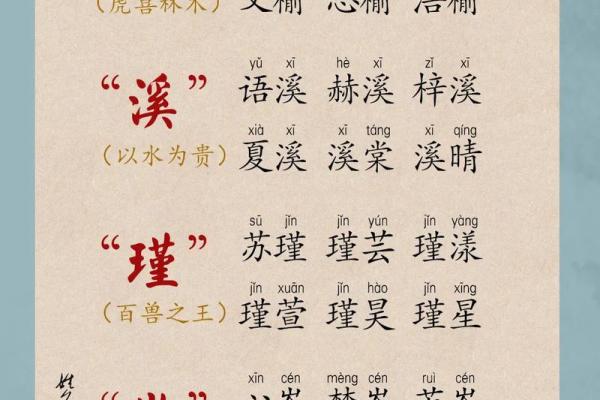 （虎喜林木）
yǔ xī hè xī zǐ xī
“溪” 语溪 赫溪 梓溪
xià xī xī táng xī qíng
（以水为贵） 夏溪 溪棠 溪晴
sū jǐn jǐn yún jǐn yàng
“瑾” 苏瑾 瑾芸 瑾漾
jǐn xuān jǐn hào jǐn xīng
（百兽之王） 瑾萱 瑾昊 瑾星
xīn cén mèng cén ruì cén